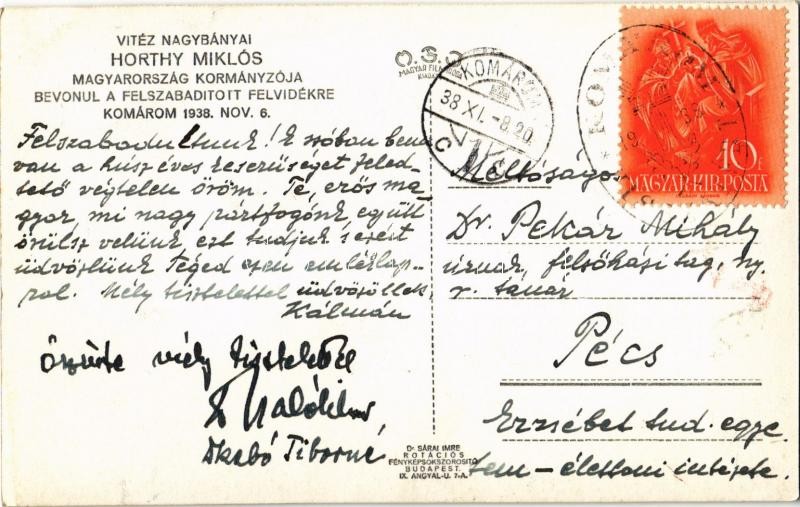 VITÉZ NAGYBÁNYAI
HORTHY MIKLÓS
MAGYARORSZÁG KORMÁNYZÓJA
BEVONUL A FELSZABADITOTT FELVIDÉKRE
KOMÁROM 1938. NOV. 6.
Felszabadultunk! E szóban benn
van a húsz éves keserűséget feled-
tető végtelen öröm. Te, erős ma-
gyar, mi nagy pártfogónk együtt
örülsz velünk, ezt tudjuk s ezért
üdvözlünk Téged ezen emléklap-
ról. Mély tisztelettel üdvözöllek
Kálmán
őszinte mély tisztelettel
Szabó Tiborné
M.F.I.
MAGYAR FILM IRODA
KIADÁSA
KOMÁROM
38 XI. -8.20
C
10 f
MAGYAR·KIR·POSTA
Méltóságos
Dr. Pekár Mihály
úrnak, felsőházi tag, ny.
r. tanár
Pécs
Erzsébet tud. egye-
tem – élettani intézete.
Dr SÁRAI IMRE
ROTÁCIÓS
FÉNYKÉPSOKSZOROSITÓ
BUDAPEST.
IX. ANGYAL-U. 7-A.